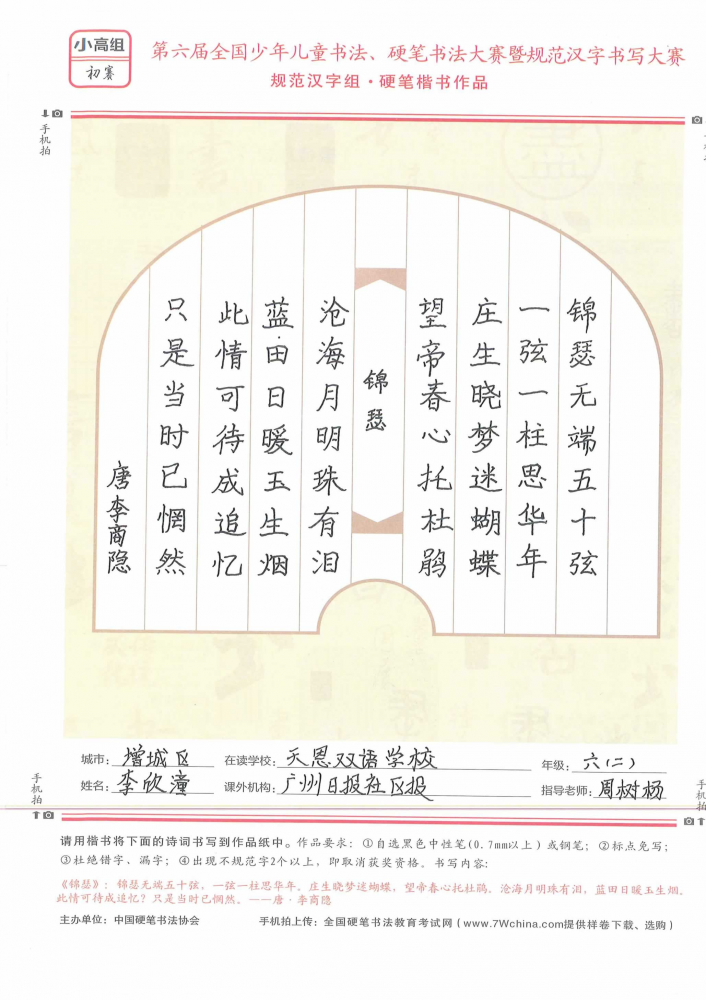 小高组
初赛
第六届全国少年儿童书法、硬笔书法大赛暨规范汉字书写大赛
规范汉字组·硬笔楷书作品
手机拍
锦瑟无端五十弦
一弦一柱思华年
庄生晓梦迷蝴蝶
望帝春心托杜鹃
锦瑟
沧海月明珠有泪
蓝田日暖玉生烟
此情可待成追忆
只是当时已惘然
唐李商隐
城市：增城区 在读学校：天恩双语学校 年级：六（二）
姓名：李欣潼 课外机构：广州日报社区报 指导老师：周树杨
手机拍
手机拍
请用楷书将下面的诗词书写到作品纸中。作品要求：①自选黑色中性笔(0.7mm以上）或钢笔；②标点免写；
③杜绝错字、漏字；④出现不规范字2个以上，即取消获奖资格。书写内容：
《锦瑟》：锦瑟无端五十弦，一弦一柱思华年。庄生晓梦迷蝴蝶，望帝春心托杜鹃。沧海月明珠有泪，蓝田日暖玉生烟。
此情可待成追忆？只是当时已惘然。——唐·李商隐
主办单位：中国硬笔书法协会 手机拍上传：全国硬笔书法教育考试网（www.7Wchina.com提供样卷下载、选购）